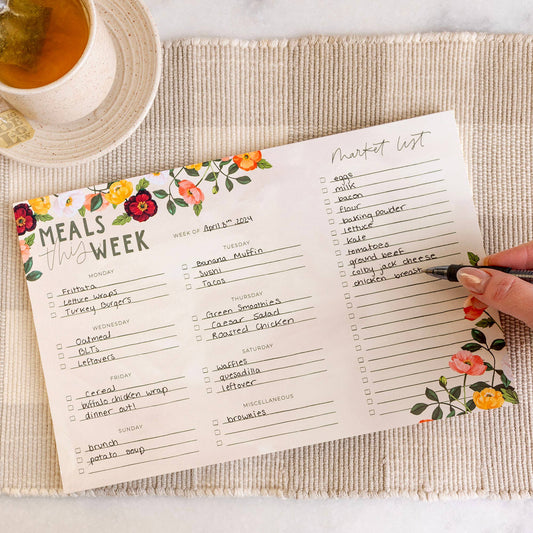 MEALS
this WEEK
WEEK OF April 8th, 2024
MONDAY
Frittata
Lettuce Wraps
Turkey Burgers
TUESDAY
Banana Muffin
Sushi
Tacos
WEDNESDAY
Oatmeal
BLTs
Leftovers
THURSDAY
Green Smoothies
Caesar Salad
Roasted Chicken
FRIDAY
Cereal
buffalo chicken wrap
dinner out!
SATURDAY
Waffles
quesadilla
leftover
SUNDAY
brunch
potato soup
MISCELLANEOUS
brownies
Market List
eggs
milk
bacon
flour
baking powder
lettuce
kale
tomatoes
ground beef
colby jack cheese
chicken breast